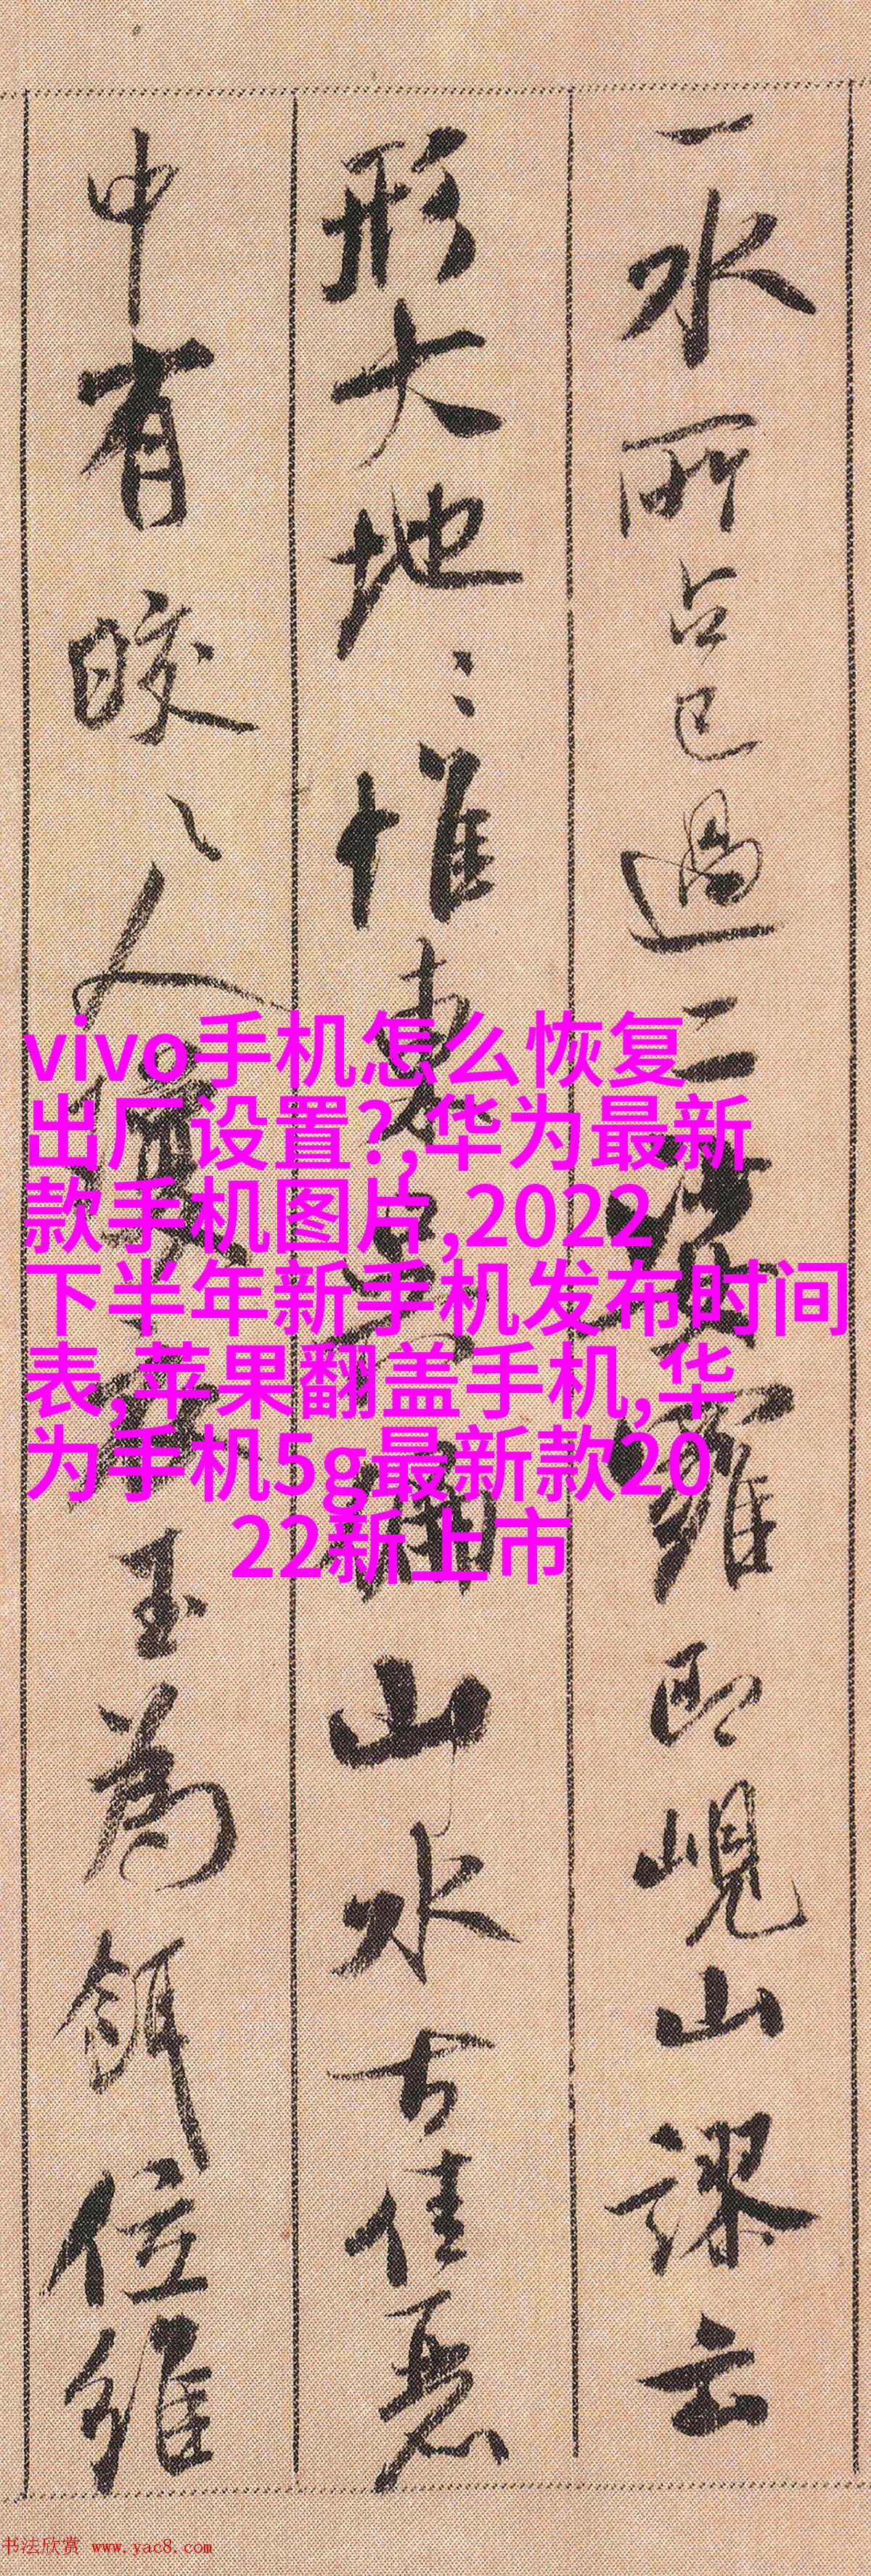 一水所占已過二
峴山謬云
形大地〻惟東吳偏山水古佳
中有皎〻人瓊衣玉為餌位維
vivo手机怎么恢复
出厂设置?,华为最新
款手机图片,2022
下半年新手机发布时间
表,苹果翻盖手机,华
为手机5g最新款20
22新上市
书法欣赏 www.yac8.com